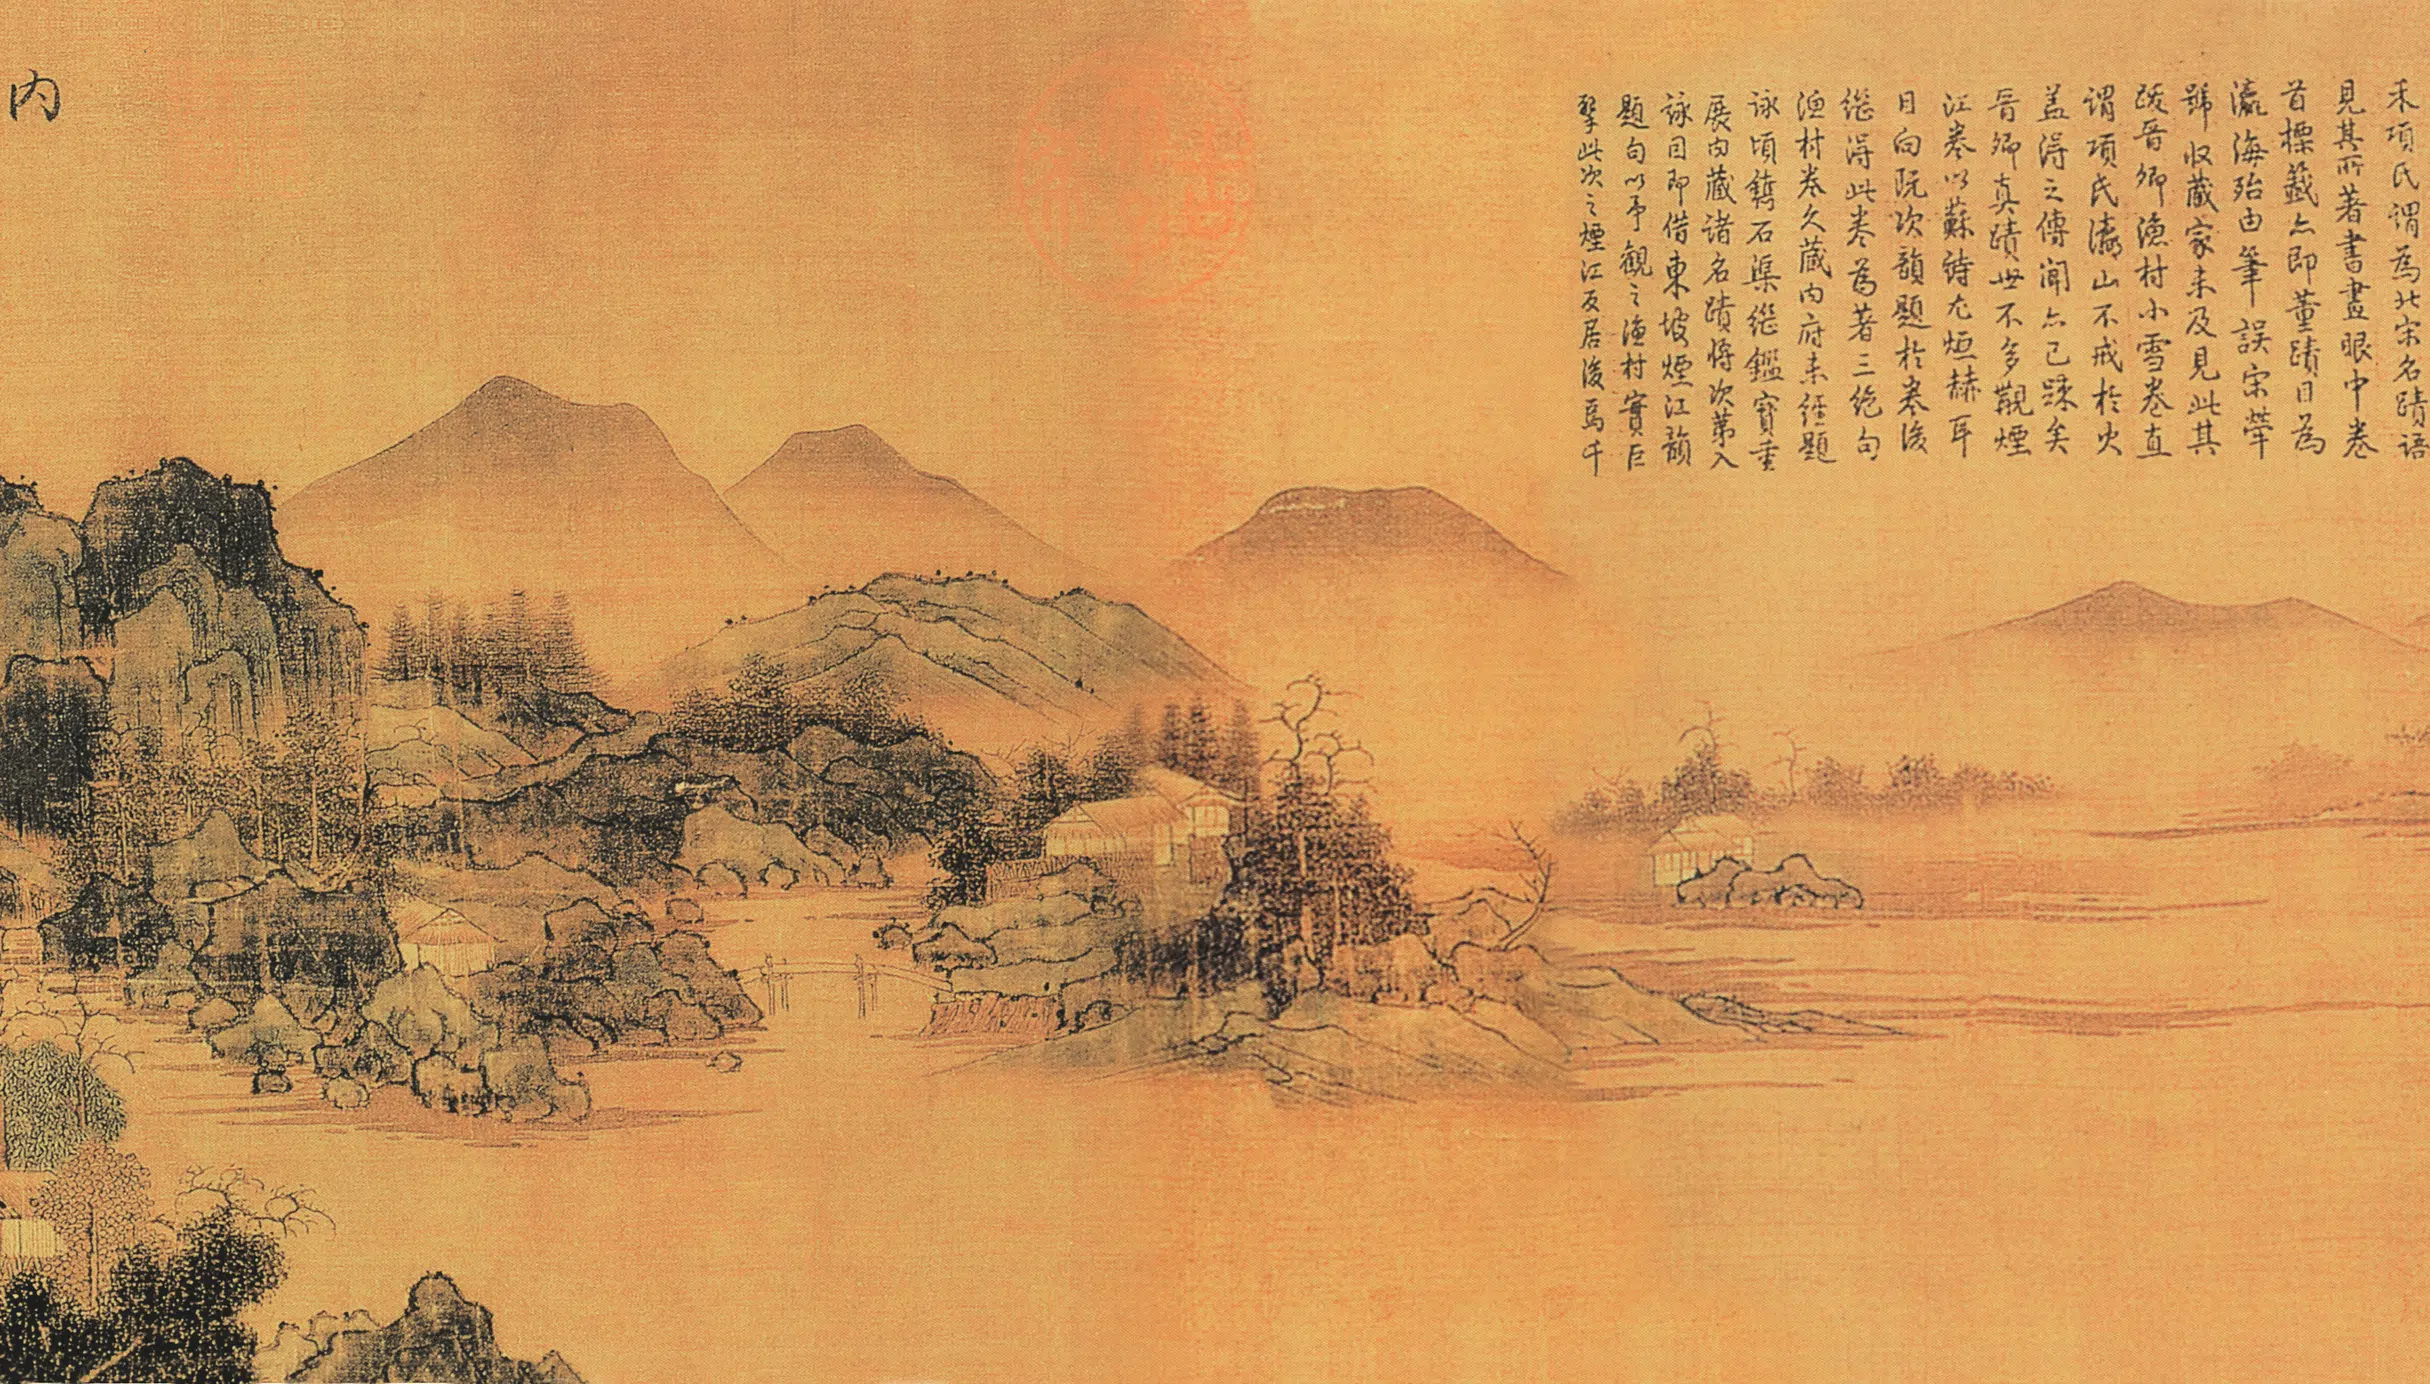 禾項氏謂為北宋名蹟語
見其所著書畫眼中卷
首標籤亦即董蹟目為
瀛海殆由筆誤宋犖
號收藏家未及見此其
跋晉卿漁村小雪卷直
謂項氏瀛山不戒於火
蓋得之傳聞亦已踈矣
晉卿真蹟世不多覯煙
江卷以蘇詩尤烜赫耳
日向既次韻題於卷後
繼得此卷為著三絕句
漁村卷久藏內府未經題
詠頃鐫石渠繼鑑寶重
展內藏諸名蹟將次第入
詠因即借東坡煙江韻
題句以予觀之漁村實巨
擘此次之煙江反居後焉千
内